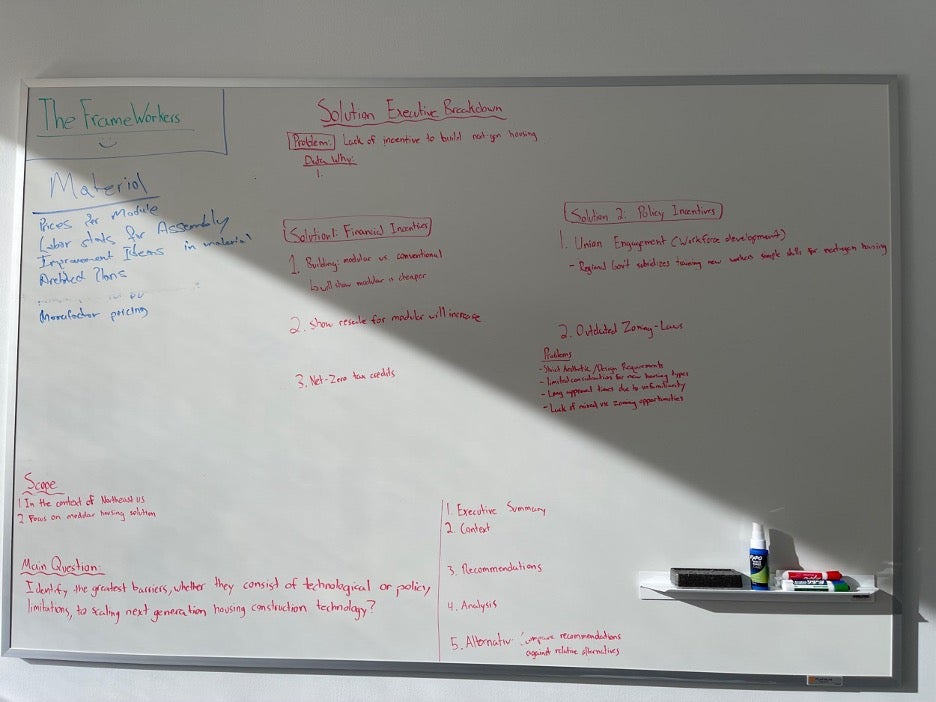 The FrameWorkers
Material
Prices for Module
Labor stats for Assembly
Improvement Ideas in material
Architect Plans
Manufactor pricing
Solution Executive Breakdown
Problem: Lack of incentive to build next-gen housing
Data Why:
1.
Solution 1: Financial Incentives
1. Building: modular vs conventional
↳ will show modular is cheaper
2. Show resale for modular will increase
3. Net-Zero tax credits
Solution 2: Policy Incentives
1. Union Engagement (Workforce development)
- Regional Gov't subsidizes training new workers simple skills for next-gen housing
2. Outdated Zoning-Laws
Problems
- Strict Aesthetic/Design Requirements
- limited consideration for new housing types
- Long approval times due to unfamiliarity
- Lack of mixed use zoning opportunities
Scope
1. In the context of Northeast US
2. Focus on modular housing solution
Main Question:
Identify the greatest barriers, whether they consist of technological or policy
limitations, to scaling next generation housing construction technology?
1. Executive Summary
2. Context
3. Recommendations
4. Analysis
5. Alternativ. compare recommendations
against relative alternatives
EXPO